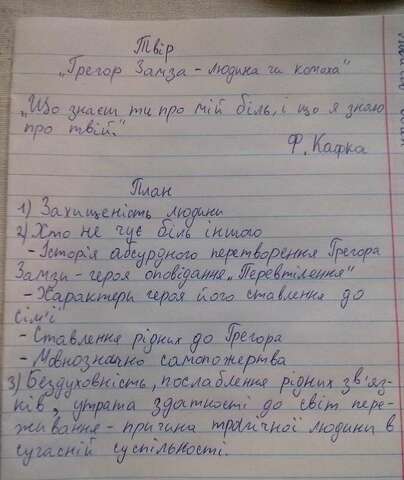 Твір
„Грегор Замза - людина чи комаха"
„Що знаєш ти про мій біль, і що я знаю
про твій."
Ф. Кафка
План
1) Захищеність людини
2) Хто не чує біль іншого
- Історія абсурдного перетворення Грегора
Замзи - героя оповідання „Перевтілення"
- Характери героя його ставлення до
сім'ї
- Ставлення рідних до Грегора
- Мовнозначно самопожертва
3) Бездуховність, послаблення рідних зв'яз-
ків, утрата здатності до світ пере-
живання - причина трагічної людини в
сучасній суспільності.